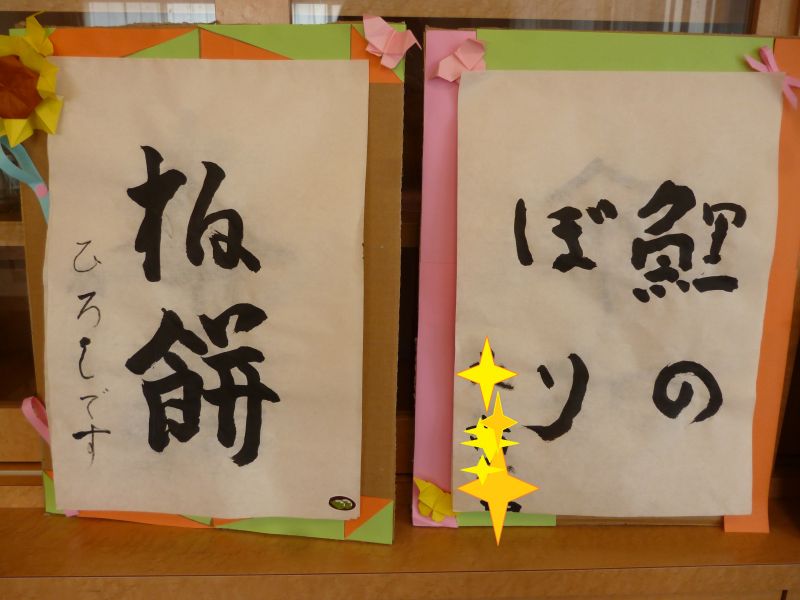 柏餅
ひろしです
鯉の
ぼり